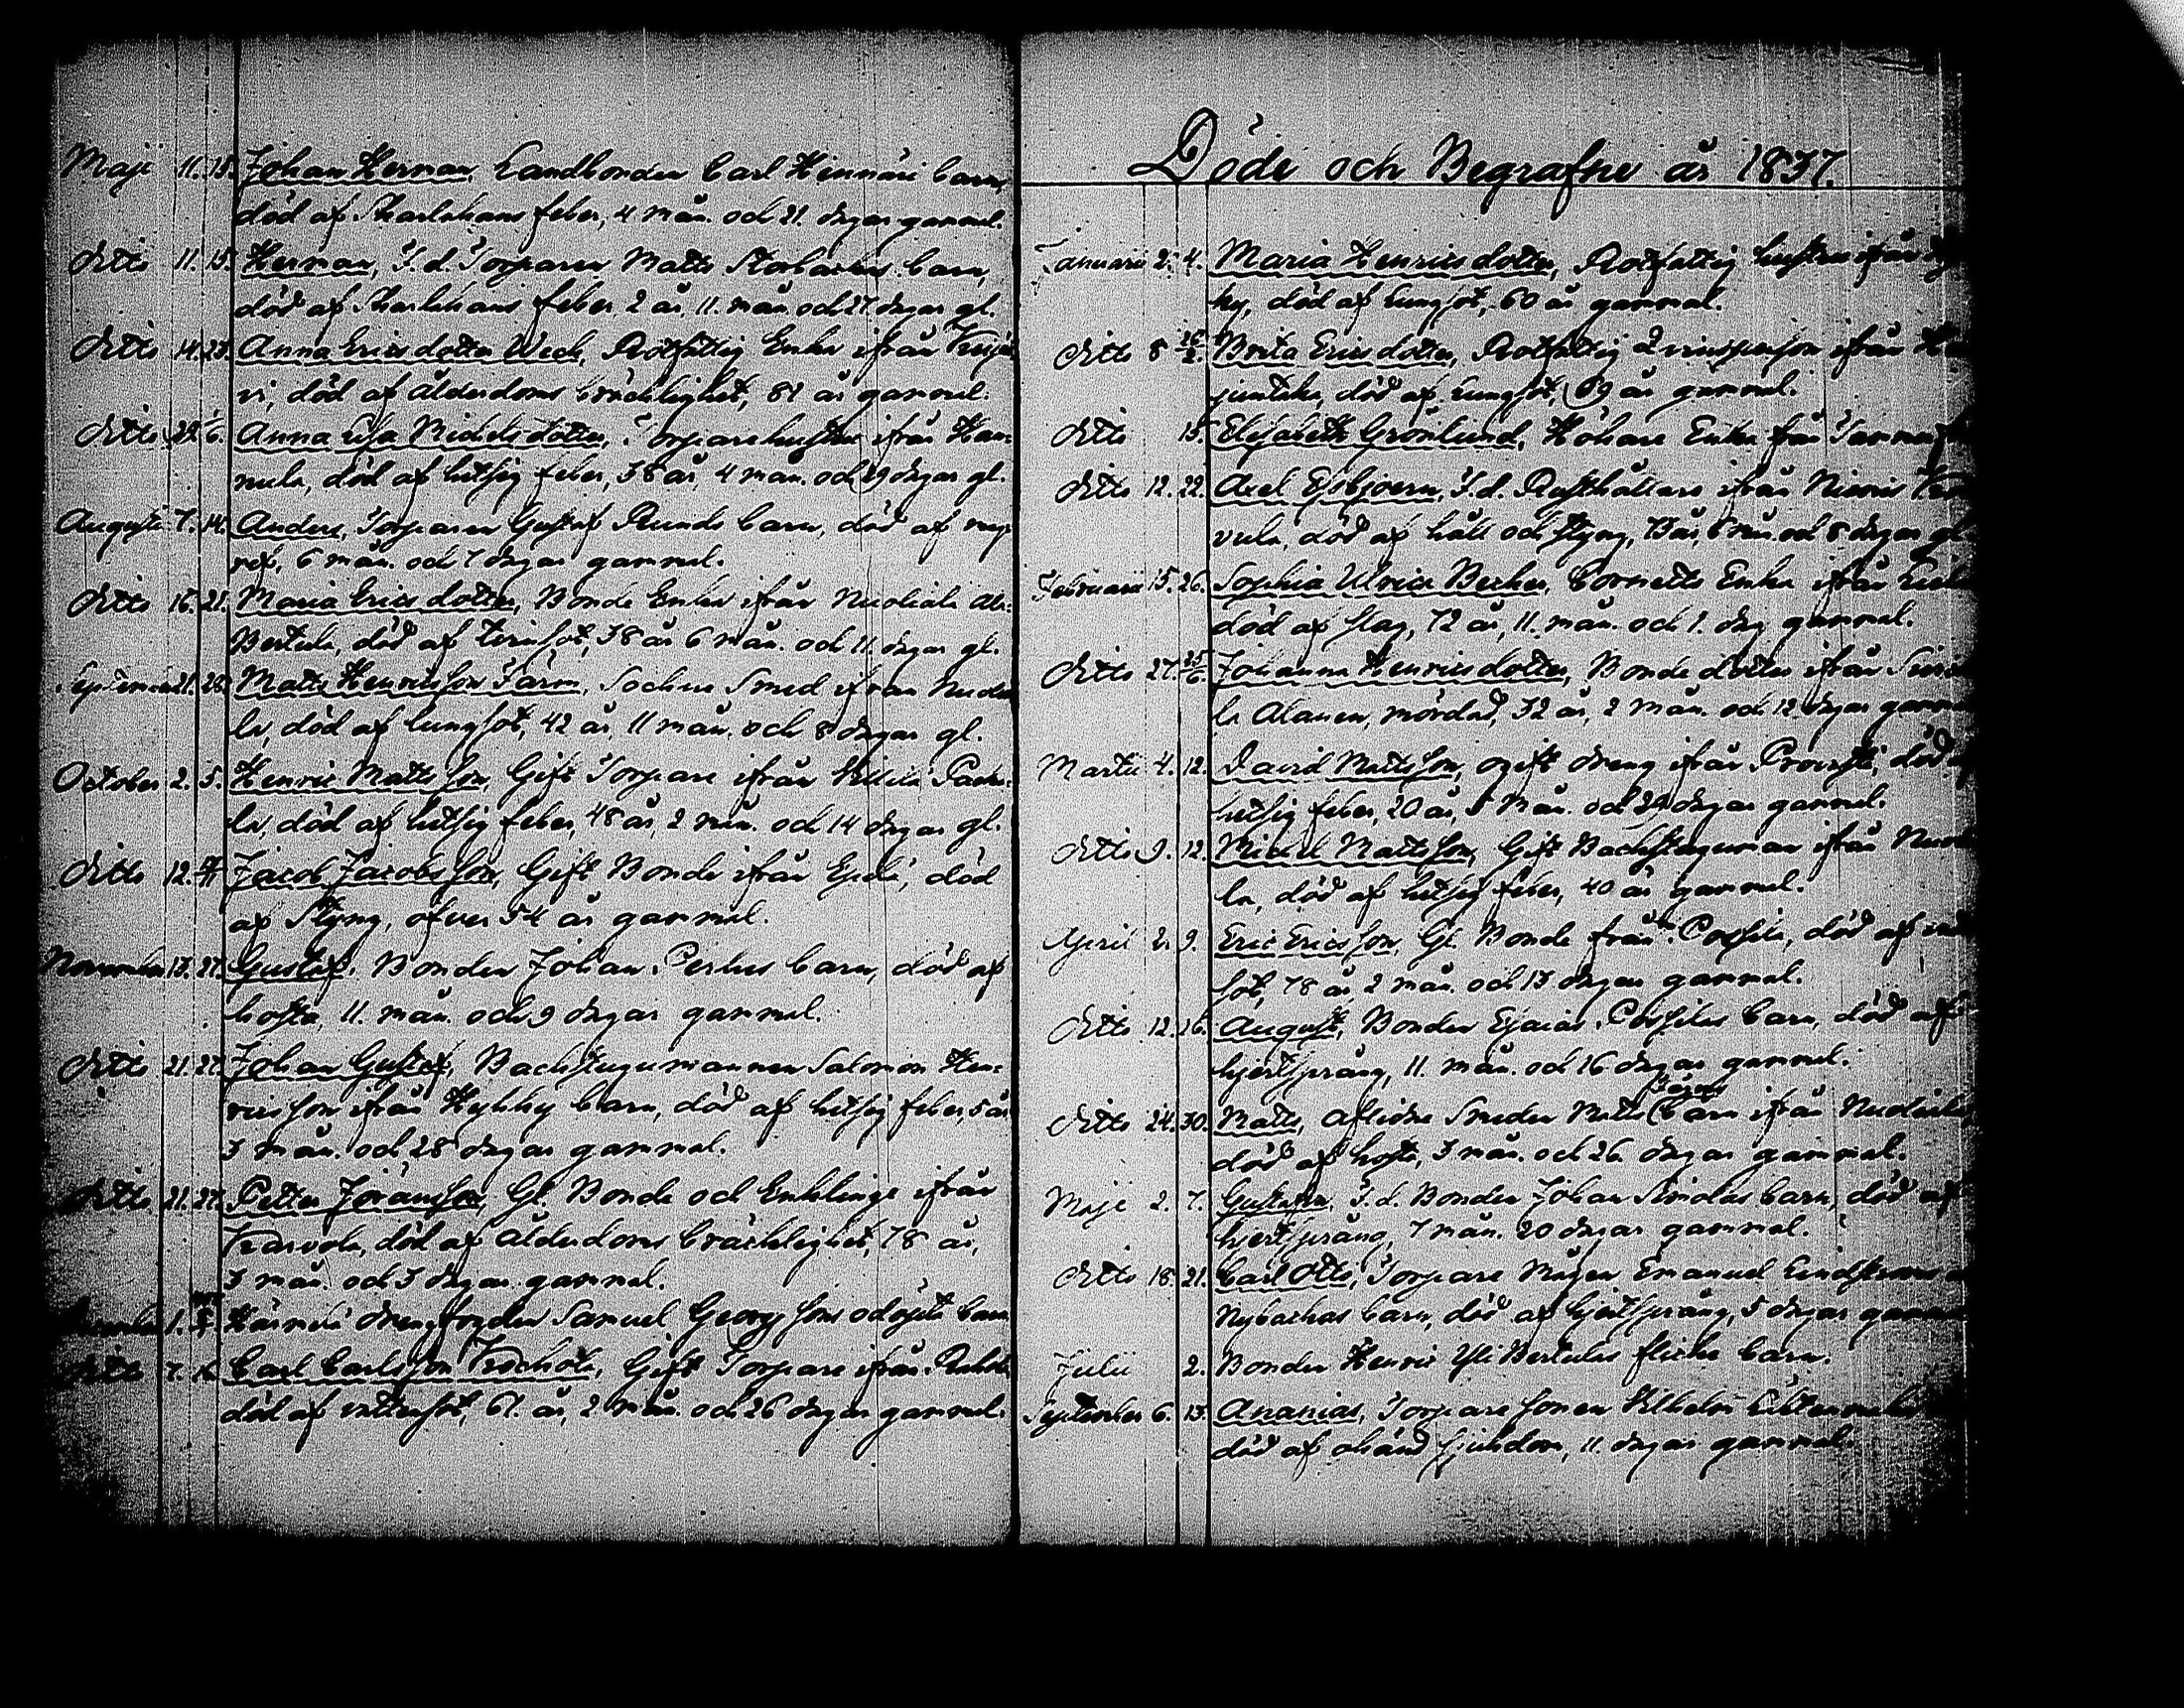 Maji 11. 15. Johan Herman, Landbonden Carl Hennäri barn,
död af Skarlakans feber, 4 mån. och 21. dagar gammal.
ditto 11. 15. Herman, S. d. Torparen Matts barn,
död af Skarlakans feber 2 år, 11. mån. och 27 dagar gl.
ditto 14. 23. Anna Ericsdotter Weck, Rotfattig Enka ifrån
vi, död af ålderdoms bräcklighet, 87 år gammal.
ditto 29. 6. Anna Lisa Michelsdotter, Torpare hustru ifrån Han-
nula, död af hetsig feber, 38 år, 4 mån. och 29 dagar gl.
Augusti 7. 14. Anders, Torparen Gustaf Runds barn, död af
ref, 6 mån. och 7 dagar gammal.
ditto 16. 21. Maria Ericsdotter, Bonde Enka ifrån Nuoliala Ala-
Bertula, död af 38 år 6 mån. och 11. dagar gl.
September 21. 28. Matts Henricsson Färm, Sockne Smed ifrån Nuolia
la, död af lungsot, 42 år, 11 mån. och 8 dagar gl.
October 2. 5. Henric Mattsson, Gift Torpare ifrån
la, död af hetsig feber, 48 år, 2 mån. och 14 dagar gl.
ditto 12. Jacob Jacobsson, Gift Bonde ifrån död
af Styng, öfver 54 år gammal.
November 13. 27. Gustaf, Bonden Johan Perhus barn, död af
hosta, 11. mån. och 9 dagar gammal.
ditto 21. 27. Johan Gustaf, Backstugumannen Salomon Hen-
ricsson ifrån Kyhky barn, död af hetsig feber, 5 år
3 mån. och 28 dagar gammal.
ditto 21. 27. Petter Göransson, Gl. Bonde och Enkling ifrån
död af ålderdoms bräcklighet, 78 år,
3 mån. och 3 dagar gammal.
1. drengfogden Samuel Georgssons odöpta barn
ditto 7. Carl Carlsson Gift Torpare ifrån
död af 61. år, 2 mån. och 26 dagar gammal.
Döde och Begrafne år 1837.
Januarii 2. 4. Maria Henricsdotter, Rotfattig hustru ifrån
ky, död af lungsot, 60 år gammal.
ditto 8 Brita Ericsdotter, Rotfattig Qvinsperson ifrån
död af lungsot, 69 år gammal.
ditto 15. Elisabeth Grönlund, Enka från
ditto 12. 22. Axel Esbjoern, S. d. Rusthållare ifrån
vula, död af håll och styng, 6 mån. och 8 dagar gl.
Februarii 15. 26. Sophia Ulrica Becker, Cornetts Enka ifrån
död af slag, 72 år, 11. mån. och 1. dag gammal.
ditto 27. Johanna Henricsdotter, Bonde dotter ifrån
la Alanen, mördad, 32 år, 2 mån. och 12 dagar gammal
Martii 4. 12. David Mattsson, ogift dreng ifrån död af
hetsig feber, 20 år, 5 mån. och 22 dagar gammal.
ditto 9. 12. Michel Mattsson, Gift Backstuguman ifrån Nuolia
la, död af hetsig feber, 40 år gammal.
April 2. 9. Eric Ericsson, Gl. Bonde från Possila, död af
sot, 78 år, 2 mån. och 13 dagar gammal.
ditto 12. 16. August, Bonden Esaias Possilas barn, död af
hjertsprång, 11. mån. och 16 dagar gammal.
Färms
ditto 24. 30. Matts, aflidne Smeden Matts barn ifrån Nuoliala
död af hosta, 3 mån. och 26. dagar gammal.
Maji 2. 7. Gustafva, S. d. Bonden Johan barn, död af
hjertsprång, 7 mån. 20 dagar gammal.
ditto 18. 21. Carl Otto, Torpare Mågen Emanuel Lindström
Nybackas barn, död af hjertsprång, 5 dagar gammal
Julii 2. Bonden Henric Yli Bertulas flicke barn.
September 6. 13. Ananias, Torpare sonen Wilhelm
död af okänd sjukdom, 11. dagar gammal.